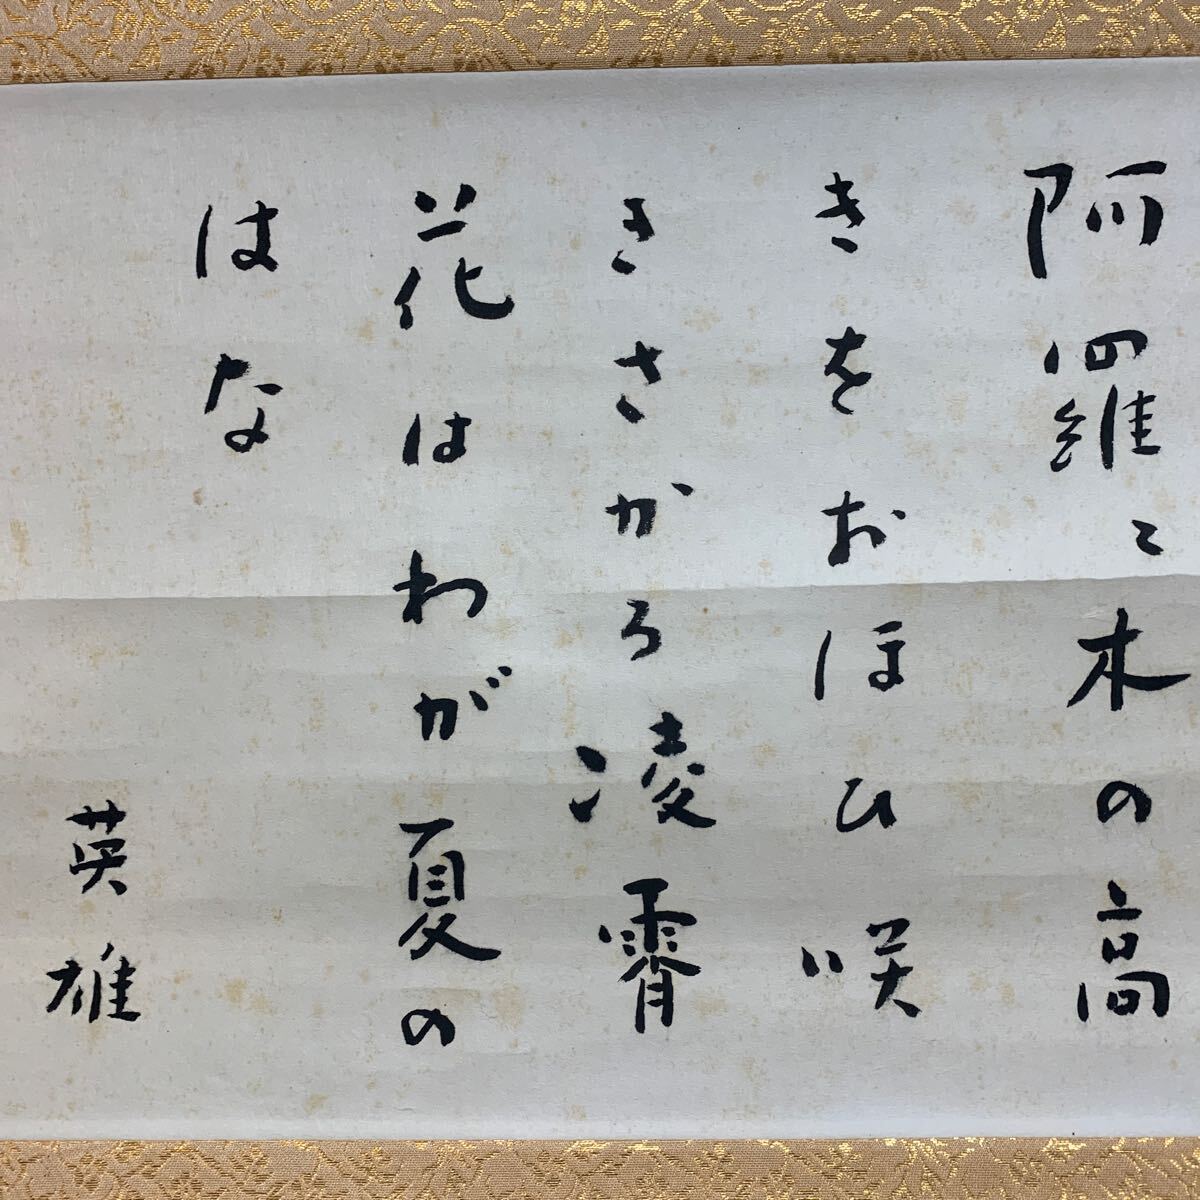 阿羅々木の高
きをおほひ咲
きさかろ凌霄
花はわが夏の
はな
英雄